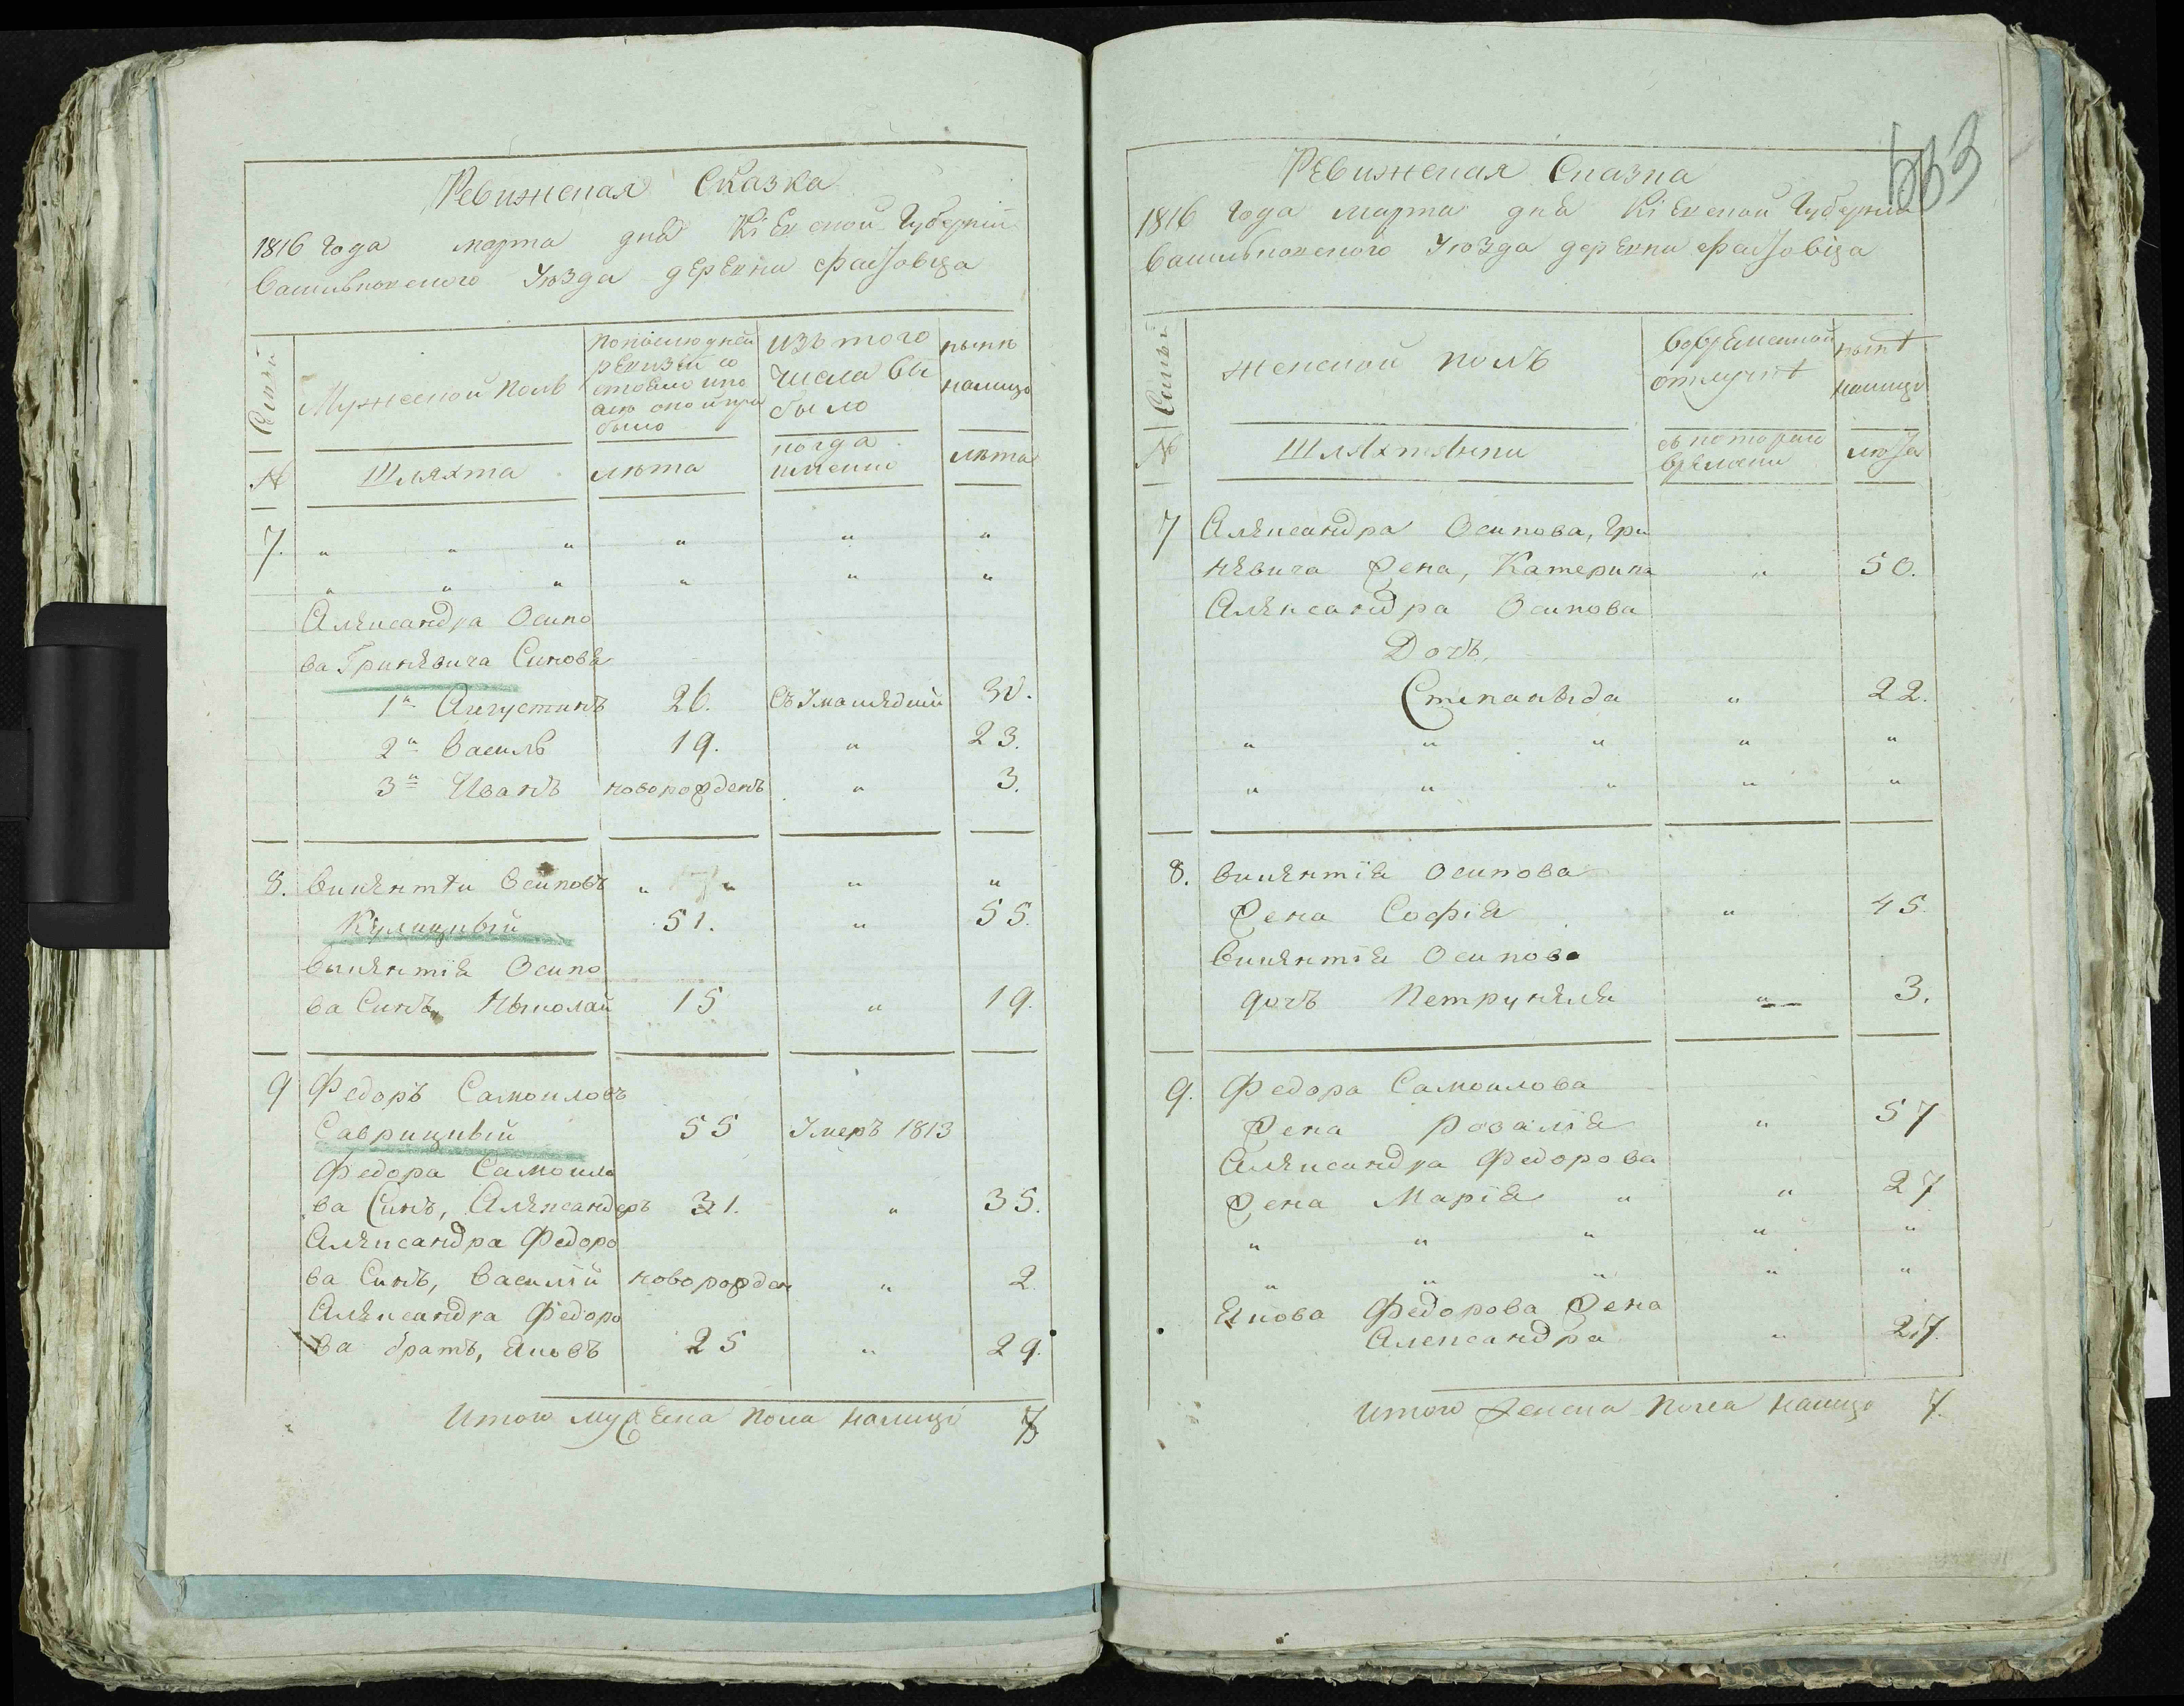 Ревижская Сказка
1816 Года марта дня Кіевской Губерніи
Васильковского Уюзда деревни Фастовца
Семьи
Мужеской полъ
попослюдней
ревизіи со
стояло и по
слю оной при
было
изъ того
числа вы
было
ныню
налицо
№
Шляхта
люта
когда
имянно
люта
7. „ „ „ „ „ „
„ „ „ „ „ „
Александра Осипо
ва Гриневича Синовя
1й Августинъ 26. Съ Умашедший 30.
2й Василь 19. „ 23.
3й Иванъ новорожденъ „ 3.
8. Викентіи Осиповъ „ „ „ „
Кулицкый 51. „ 55.
Выкентія Осипо
ва Синъ, Ныколай 15 „ 19.
9 Федоръ Самоиловъ
Саврицкый 55 Умеръ 1813
Федора Самоила
ва Синъ, Александеръ 31. „ 35.
Александра Федоро
ва Синъ, Василій новорожден „ 2
Александра Федоро
ва братъ, Яковъ 25 „ 29.
Итого мужеска пола налицо 7
663
Ревижская Сказка
1816 Года марта дня Кіевской Губерніи
Васильковского Уюзда деревни Фастовца
Семьи
женской полъ
вовременной
отлучкѣ
нынѣ
налицо
№
Шляхтянки
съ котораго
времени
люта
7 Александра Осипова, Гри
невича Жена, Катерина „ 50.
Александра Осипова
Дочъ,
Степаныда „ 22.
„ „ „ „ „
„ „ „ „ „
8. Викентія Осипова
Жена Софія „ 45.
Викентія Осипова
дочъ Петрунеля „ 3.
9. Федора Самоилова
Жена Розалія „ 57
Александра Федорова
Жена Марія „ „ 27
„ „ „ „ „
„ „ „ „ „
Якова Федорова Жена
Александра „ 27.
Итого Женска Пола налицо 7.